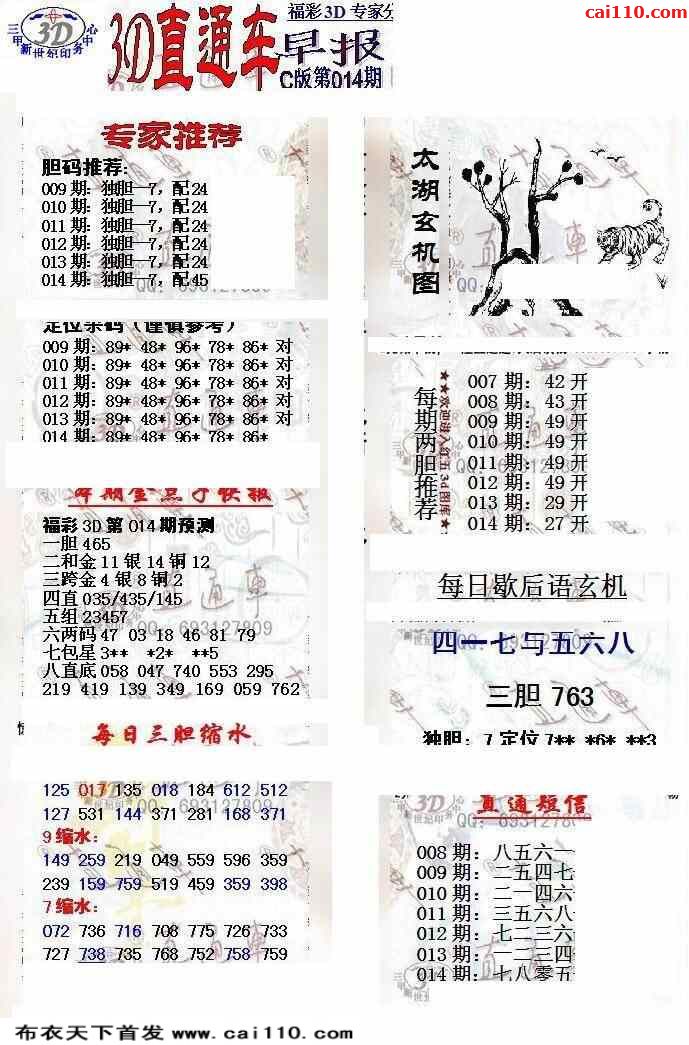 cai110.com
福彩3D 专家分
三甲新世纪印务中心
3D
3D直通车早报
C版第014期
专家推荐
胆码推荐:
009 期：独胆—7，配24
010 期：独胆—7，配24
011 期：独胆—7，配24
012 期：独胆—7，配24
013 期：独胆—7，配24
014 期：独胆—7，配45
QQ: 693127809
太湖玄机图
定位杀码（谨慎参考）
009 期：89* 48* 96* 78* 86* 对
010 期：89* 48* 96* 78* 86* 对
011 期：89* 48* 96* 78* 86* 对
012 期：89* 48* 96* 78* 86* 对
013 期：89* 48* 96* 78* 86* 对
014 期：89* 48* 96* 78* 86*
每期两胆推荐
★★欢迎进入红五3d图库★
007 期：42 开
008 期：43 开
009 期：49 开
010 期：49 开
011 期：49 开
012 期：49 开
013 期：29 开
014 期：27 开
每期金点子快报
福彩 3D 第 014 期预测
一胆 465
二和金 11 银 14 铜 12
三跨金 4 银 8 铜 2
四直 035/435/145
五组 23457
六两码 47 03 18 46 81 79
七包星 3** *2* **5
八直底 058 047 740 553 295
219 419 139 349 169 059 762
每日歇后语玄机
四一七与五六八
三胆 763
独胆：7 定位 7** *6* **3
每日三胆缩水
125 017 135 018 184 612 512
127 531 144 371 281 168 371
9 缩水：
149 259 219 049 559 596 359
239 159 759 519 459 359 398
7 缩水：
072 736 716 708 775 726 733
727 738 735 768 752 758 759
直通短信
008 期：八五六一
009 期：二五四七
010 期：二一四六
011 期：三五六八
012 期：七二三六
013 期：一二三四
014 期：七八零五
布衣天下首发 www.cai110.com